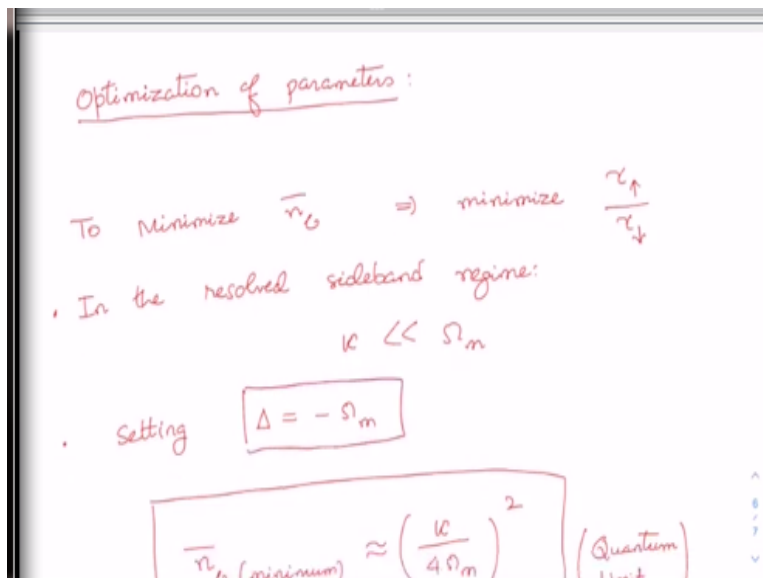 Optimization of parameters :
To Minimize n̄_b ⇒ minimize γ↑/γ↓
. In the resolved sideband regime:
κ << Ω_m
. Setting Δ = - Ω_m
n̄_b (minimum) ≈ (κ/4Ω_m)^2 (Quantum
Limit